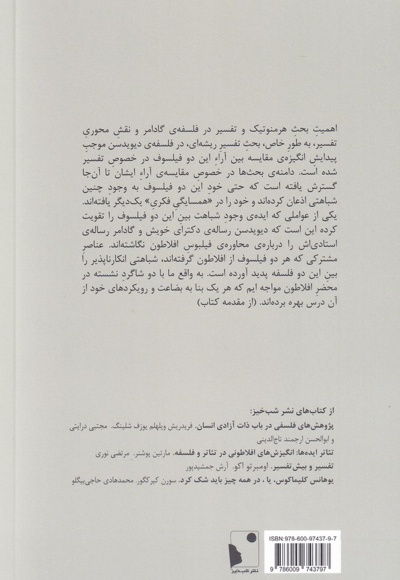 اهمیتِ بحثِ هرمنوتیک و تفسیر در فلسفه‌ی گادامر و نقشِ محوریِ
تفسیر، به طورِ خاص، بحثِ تفسیرِ ریشه‌ای، در فلسفه‌ی دیویدسن موجبِ
پیدایشِ انگیزه‌ی مقایسه بینِ آراءِ این دو فیلسوف در خصوصِ تفسیر
شده است. دامنه‌ی بحث‌ها در خصوصِ مقایسه‌ی آراءِ ایشان تا آن‌جا
گسترش یافته است که حتی خودِ این دو فیلسوف به وجودِ چنین
شباهتی اذعان کرده‌اند و خود را در «همسایگیِ فکریِ» یک‌دیگر یافته‌اند.
یکی از عواملی که ایده‌ی وجودِ شباهت بینِ این دو فلسفه را تقویت
کرده این است که دیویدسن رساله‌ی دکترای خویش و گادامر رساله‌ی
استادی‌اش را درباره‌ی محاوره‌ی فیلبوسِ افلاطون نگاشته‌اند. عناصرِ
مشترکی که هر دو فیلسوف از افلاطون گرفته‌اند، شباهتی انکارناپذیر را
بینِ این دو فلسفه پدید آورده است. به واقع ما با دو شاگردِ نشسته در
محضرِ افلاطون مواجه ایم که هر یک بنا به بضاعت و رویکردهای خود از
آن درس بهره برده‌اند. (از مقدمه کتاب)
از کتاب‌های نشر شب‌خیز:
پژوهش‌های فلسفی در باب ذات آزادی انسان. فریدریش ویلهلم یوزف شلینگ. مجتبی درایتی
و ابوالحسن ارجمند تاج‌الدینی
تئاتر ایده‌ها: انگیزش‌های افلاطونی در تئاتر و فلسفه. مارتین پوشنر. مرتضی نوری
تفسیر و بیش تفسیر. اومبرتو اکو. آرش جمشیدپور
یوهانس کلیماکوس، یا ، در همه چیز باید شک کرد. سورن کیرکگور. محمدهادی حاجی‌بیگلو
ISBN: 978-600-97437-9-7
9 786009 743797
نشر شب‌خیز